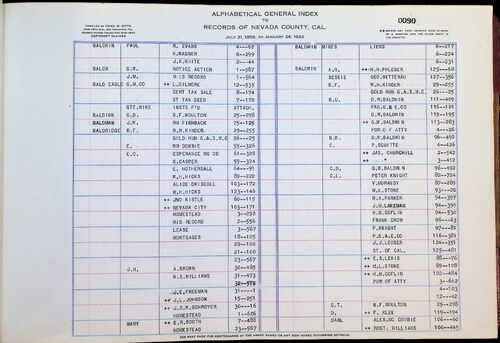 COMPILED BY CHAS. W. KITTS
ALPHABETICAL GENERAL INDEX
TO
RECORDS OF NEVADA COUNTY, CAL.
JULY 21, 1856, to JANUARY 28, 1952
COPYRIGHT CLAIMED
0090
BALCHIN PAUL R. EVANS 4--62
H.WAGNER 6--299
J.K.WHITE 2--44
BALCK G.W. NOTICE ACTION 1--987
J.M. HIS RECORD 1--564
BALD EAGLE G.M.CO ++ L.GILMORE 12--535
CERT TAX SALE 8--174
ST TAX DEED 7--170
QTZ.MINE INSTS F'D ATTACH.
BALDION G.D. B.F.MOULTON 25--298
BALDMAN J.N. WM FISHBACK 75--125
BALDRIDGE B.F. W.H.KINDER 29--255
GOLD RUN G.&S.M.C 26--25
E. WM DOWNIE 55--326
E.C. ESPERANCE MG CO 61--328
K.CASPER 59--324
E. MOTHERSALL 64--91
W.H.HICKS 89--222
ALICE DRISCOLL 103--172
W.H.HICKS 123--146
++ JNO KISTLE 60--115
++ NEVADA CITY 103--171
HOMESTEAD 3--292
HIS RECORD 2--556
LEASE 3--567
MORTGAGES 18--105
20--100
21--100
23--567
J.H. A.BROWN 30--485
W.&.WILLIAMS 31--473
32--572
J.E.FREEMAN 31---1
++ J.L.JOHNSON 15--251
++ J.C.W.SCHROYER 30--16
HOMESTEAD 1--606
MARY ++ E.R.BOOTH 7--488
HOMESTEAD 23--567
BALDWIN MINES LIENS 6--217
6--224
6--231
BALDWIN A.R. ++ H.H.PFLEGER 125--68
BESSIE GEO.METTERAU 127--356
B.F. W.H.KINDER 29--255
GOLD RUN G.&S.M.C 26--25
B.U. D.M.BALDWIN 111--409
PAC.G.& E.CO 116--101
++ G.W.BALDWIN 113--283
POW OF ATTY 4--26
B.W. G.W.BALDWIN 96--492
E. P.SCUITTE 4--426
++ JAS. CHURCHILL 2--542
3--412
C.D. G.W.BALDWIN 96--492
C.L. PETER KNIGHT 82--724
W.L.STONE 93--20
W.A.PARKER 94--397
J.H.LAKEMAN 94--399
H.D.COFLIN 94--530
FRANK CROW 96--63
P.KNIGHT 97--81
P.G.& E.CO 116--381
J.J.LOGSER 124--351
ST. OF CAL. 125--481
++ E.D.LEWIS 88--76
++ W.L.STONE 89--108
++ H.D.COFLIN 102--484
POW OF ATTY 3--642
4--103
12--42
C.T. B.F.MOULTON 25--298
D. ++ F. KLEE 119--194
DANL ALEX.GE COUSIE 106--60
++ ROBT. GILLHANS 106--445